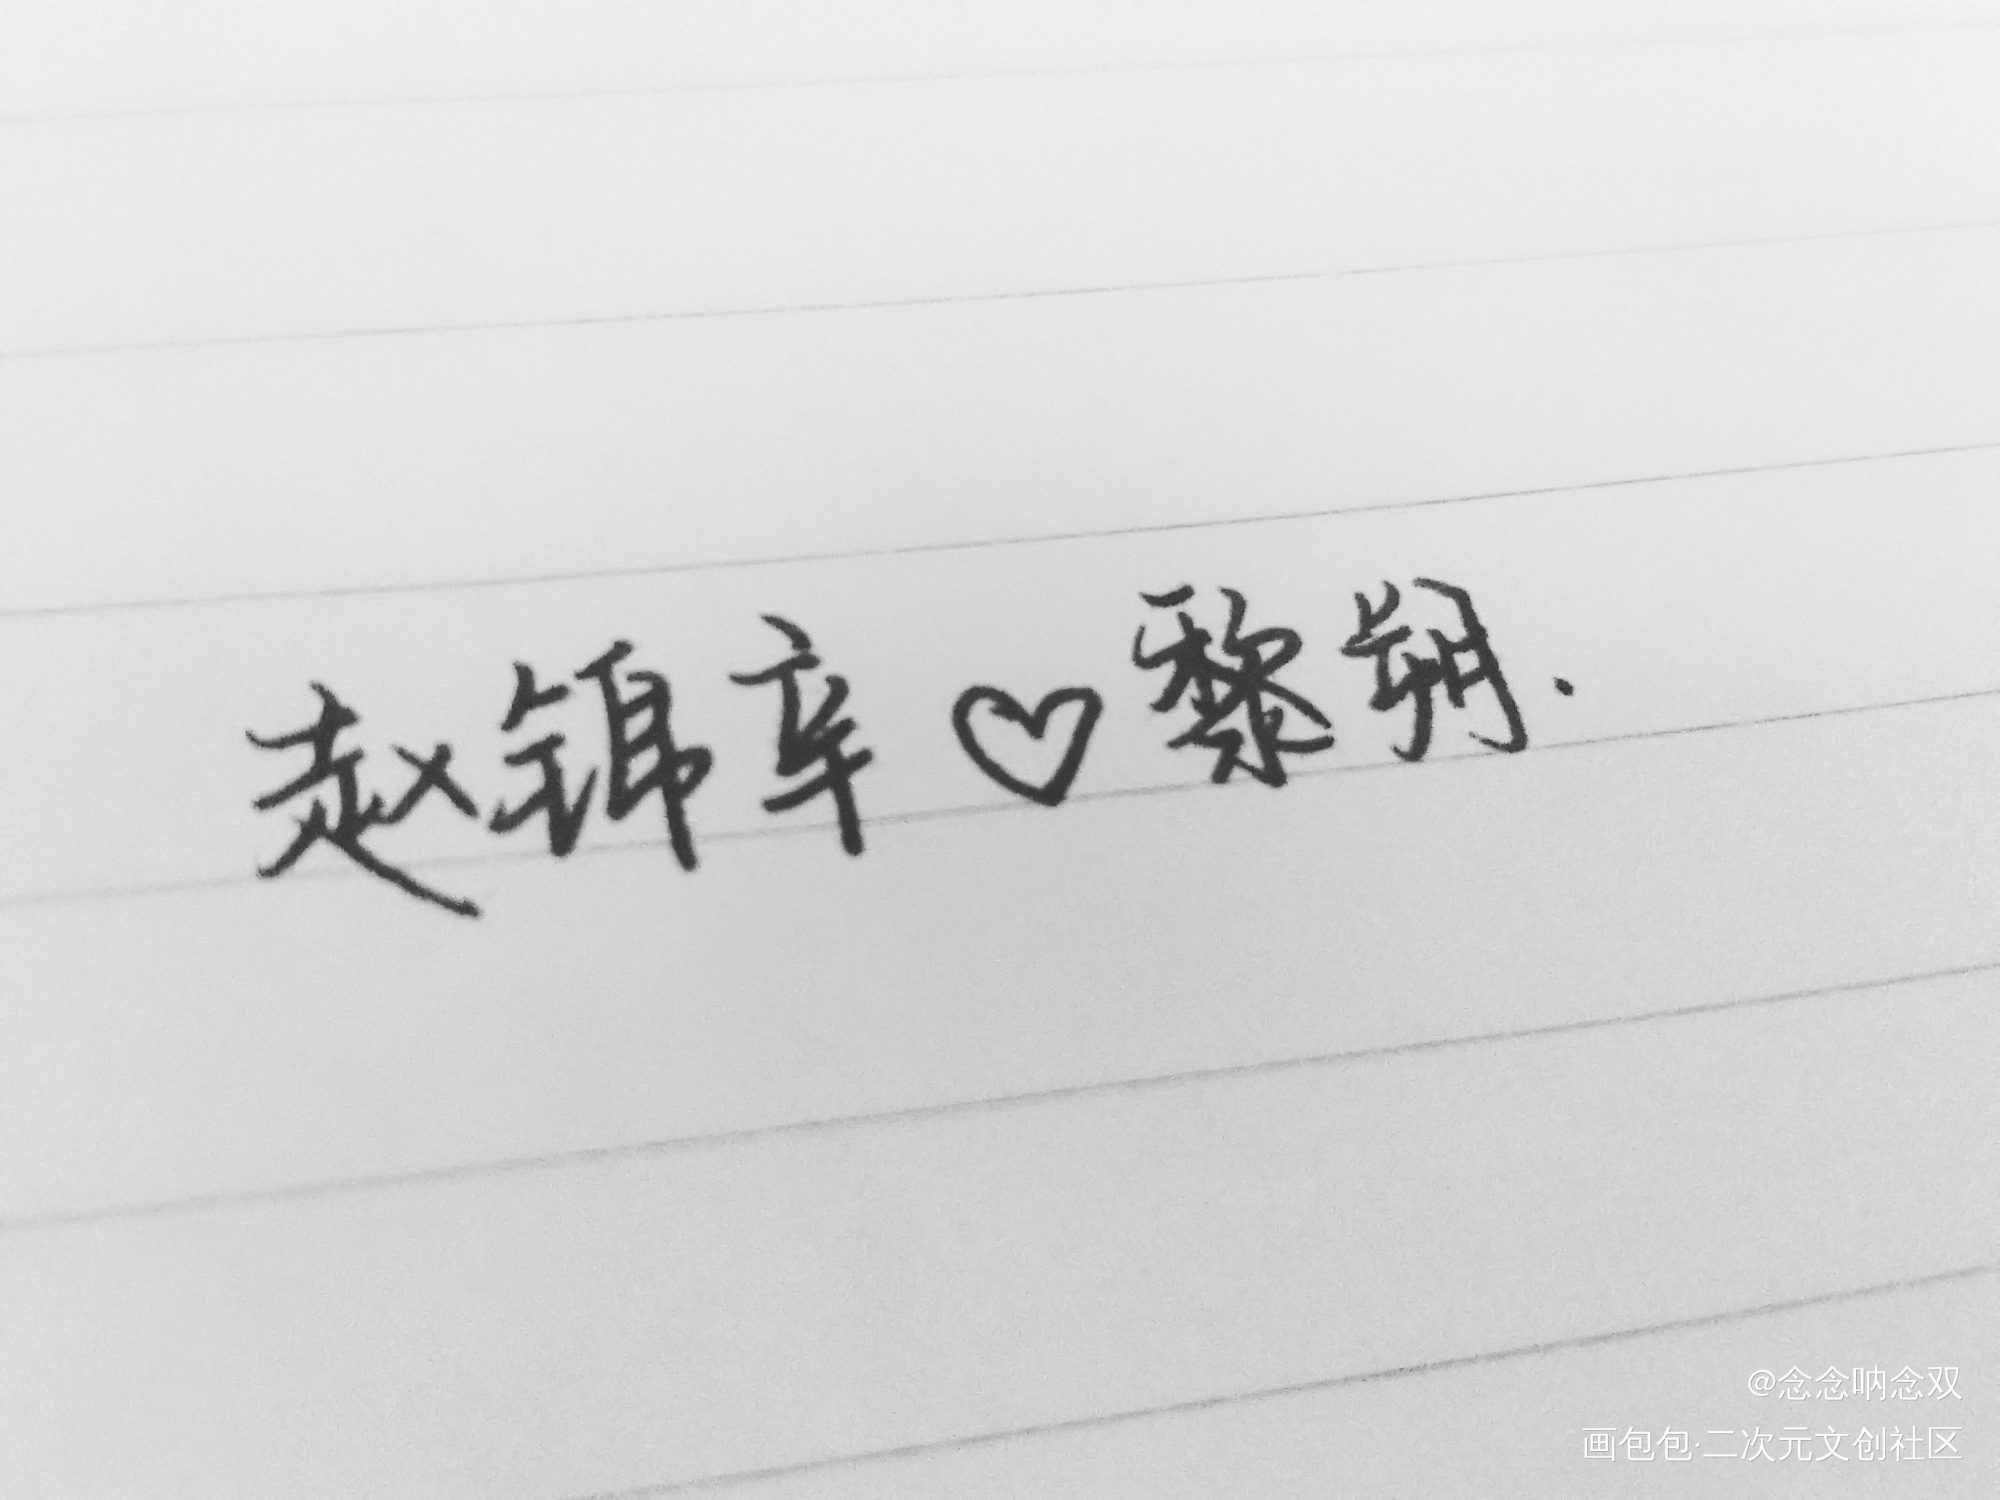 赵锦辛♡黎朔.
@念念呐念双
画包包·二次元文创社区